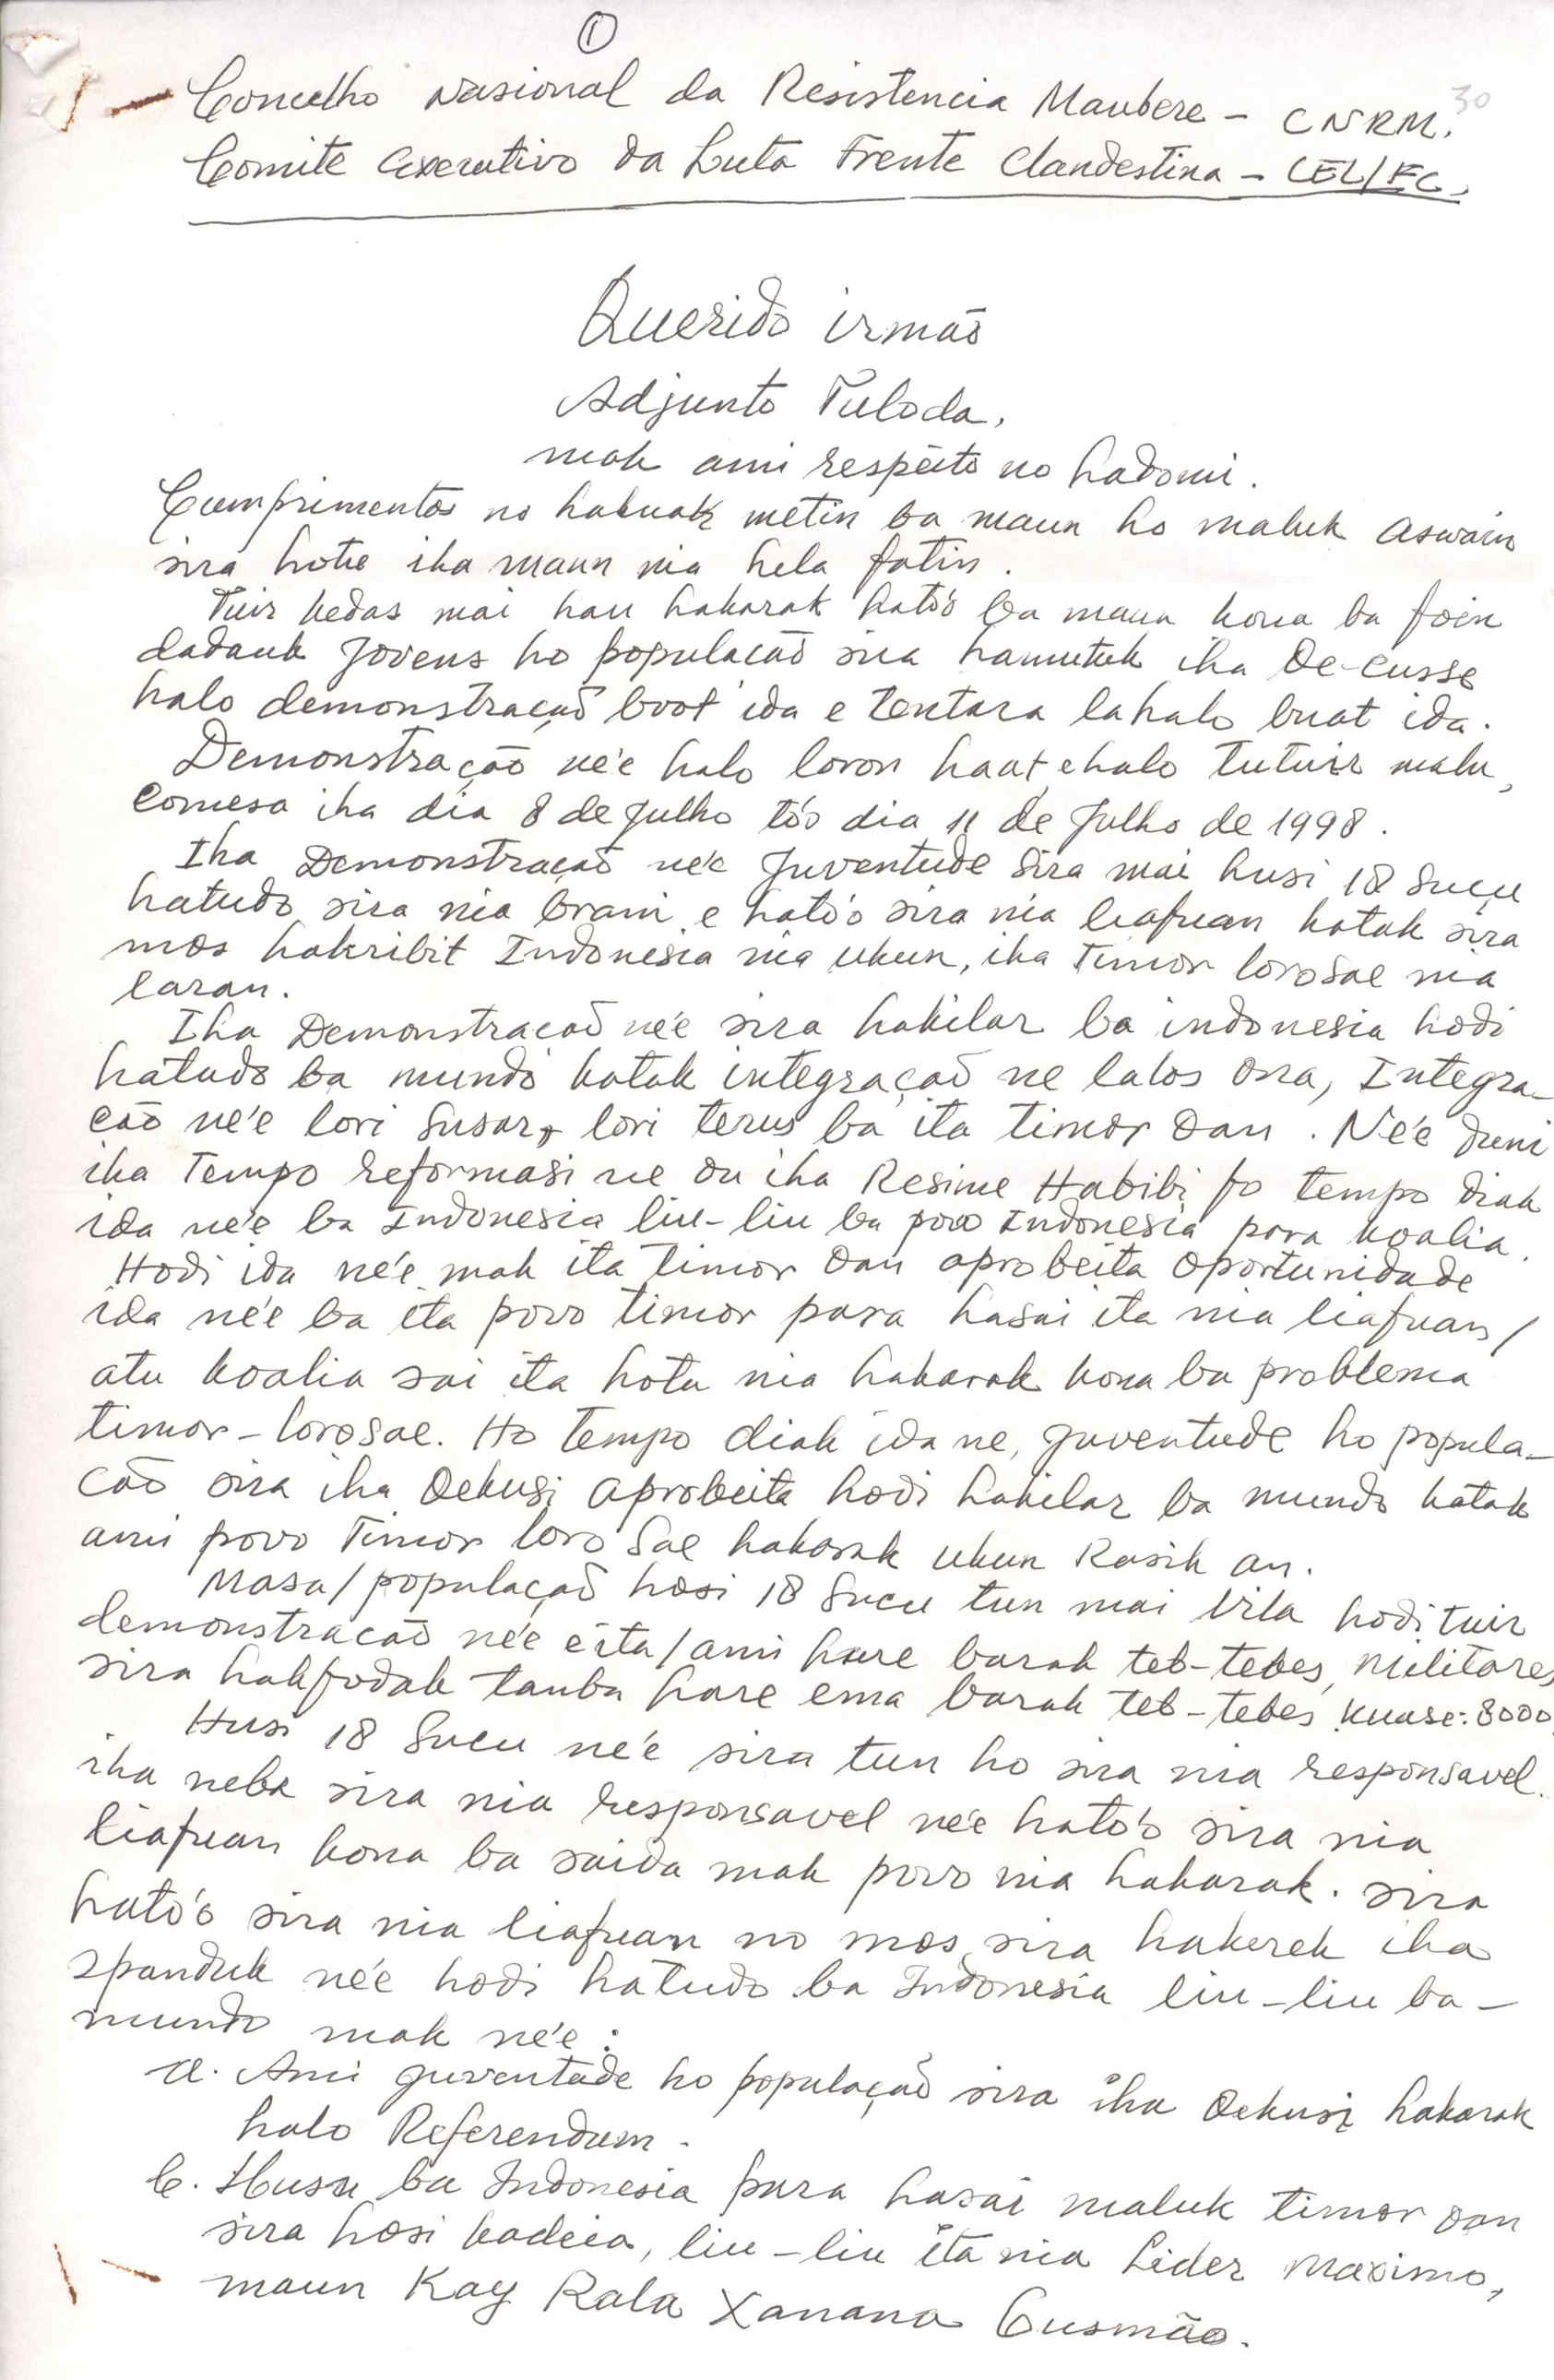 1
30
Concelho Nasional da Resistencia Maubere - CNRM.
Comite executivo da Luta Frente Clandestina - CEL/FC.
Querido irmão
Adjunto Tuloda,
mak ami respeito no hadomi.
Cumprimentos no hakuak metin ba maun ho maluk aswain
sira hotu iha maun nia hela fatin.
Tuir kedas mai hau hakarak hato'o ba maun kona ba foin
dadauk Jovens ho populacaõ sira hamutuk iha Oe-cusse
halo demonstraçaõ boot ida e tentara lahalo buat ida.
Demonstração ne'e halo loron haat, e halo tutuir malu,
Comesa iha dia 8 de Julho to'o dia 11 de Julho de 1998.
Iha Demonstraçaõ ne'e Juventude sira mai husi 18 Suçu
hatudo sira nia brani e hato'o sira nia liafuan katak sira
mos hakribit Indonesia nia ukun, iha Timor lorosae nia
laran.
Iha Demonstracaõ ne'e sira hakilar ba indonesia hodi
hatudo ba mundo katak integraçaõ ne lalos ona, Integra-
cão ne'e lori Susar, lori terus ba ita timor oan. Ne'e duni
iha Tempo reformasi ne ou iha Resime Habibi fo tempo diak
ida ne'e ba Indonesia liu-liu ba povo Indonesia para koalia.
Hodi ida ne'e mak ita timor oan aprobeita oportunidade
ida ne'e ba ita povo timor para hasai ita nia liafuan/
atu koalia sai ita hotu nia hakarak kona ba problema
timor-lorosae. Ho tempo diak ida ne, juventude ho popula-
caõ sira iha Oekusi aprobeita hodi hakilar ba mundo katak
ami povo Timor loro Sae hakarak ukun Rasik an.
Masa/populaçaõ hosi 18 Sucu tun mai vila hodi tuir
demonstracaõ ne'e ita/ami hare barak teb-tebes, militares
sira hakfodak tanba hare ema barak teb-tebes kuase: 8000.
Husi 18 Sucu ne'e sira tun ho sira nia responsavel.
iha neba sira nia responsavel ne'e hato'o sira nia
liafuan kona ba saida mak povo nia hakarak. sira
hato'o sira nia liafuan no mos sira hakerek iha
spanduk ne'e hodi hatudo ba Indonesia liu-liu ba-
mundo mak ne'e:
a. Ami juventude ho populaçaõ sira iha Oekusi hakarak
halo Referendum.
b. Husu ba Indonesia para hasai maluk timor oan
sira hosi kadeia, liu-liu ita nia Lider Maximo,
maun Kay Rala Xanana Gusmão.